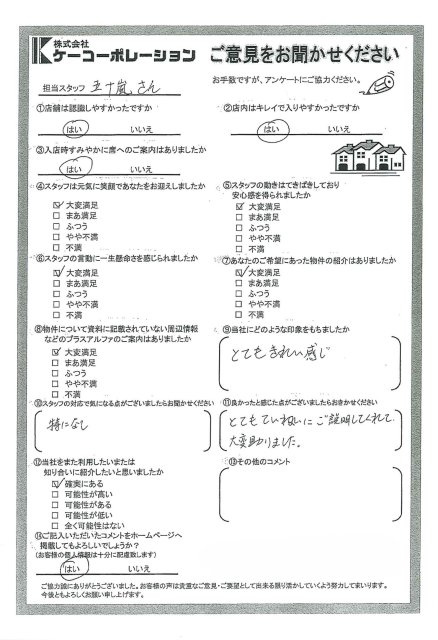 株式会社
ケーコーポレーション
ご意見をお聞かせください
担当スタッフ 五十嵐さん
お手数ですが、アンケートにご協力ください。
①店舗は認識しやすかったですか
はい いいえ
②店内はキレイで入りやすかったですか
はい いいえ
③入店時すみやかに席へのご案内はありましたか
はい いいえ
④スタッフは元気に笑顔であなたをお迎えしましたか
☑ 大変満足
□ まあ満足
□ ふつう
□ やや不満
□ 不満
⑤スタッフの動きはてきぱきしており
安心感を得られましたか
☑ 大変満足
□ まあ満足
□ ふつう
□ やや不満
□ 不満
⑥スタッフの言動に一生懸命さを感じられましたか
☑ 大変満足
□ まあ満足
□ ふつう
□ やや不満
□ 不満
⑦あなたのご希望にあった物件の紹介はありましたか
☑ 大変満足
□ まあ満足
□ ふつう
□ やや不満
□ 不満
⑧物件について資料に記載されていない周辺情報
などのプラスアルファのご案内はありましたか
☑ 大変満足
□ まあ満足
□ ふつう
□ やや不満
□ 不満
⑨当社にどのような印象をもちましたか
とてもきれい感じ
⑩スタッフの対応で気になる点がございましたらお聞かせください
特になし
⑪良かったと感じた点がございましたらおきかせください
とてもていねいにご説明してくれて
大変助りました。
⑫当社をまた利用したいまたは
知り合いに紹介したいと思いましたか
☑ 確実にある
□ 可能性が高い
□ 可能性がある
□ 可能性が低い
□ 全く可能性はない
⑬その他のコメント
⑭ご記入いただいたコメントをホームページへ
掲載してもよろしいでしょうか？
(お客様の個人情報は十分に配慮致します)
はい いいえ
ご協力誠にありがとうございました。お客様の声は貴重なご意見・ご要望として出来る限り活かしていくよう努力してまいります。
今後ともよろしくお願い申し上げます。